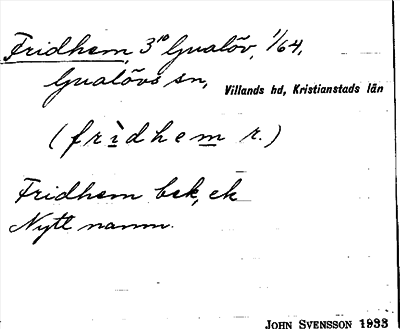 Fridhem, 3¹⁰ Gualöv, 1/64,
Gualövs sn, Villands hd, Kristianstads län
(frìdhem r.)
Fridhem bek, ek
Nytt namn.
JOHN SVENSSON 1933